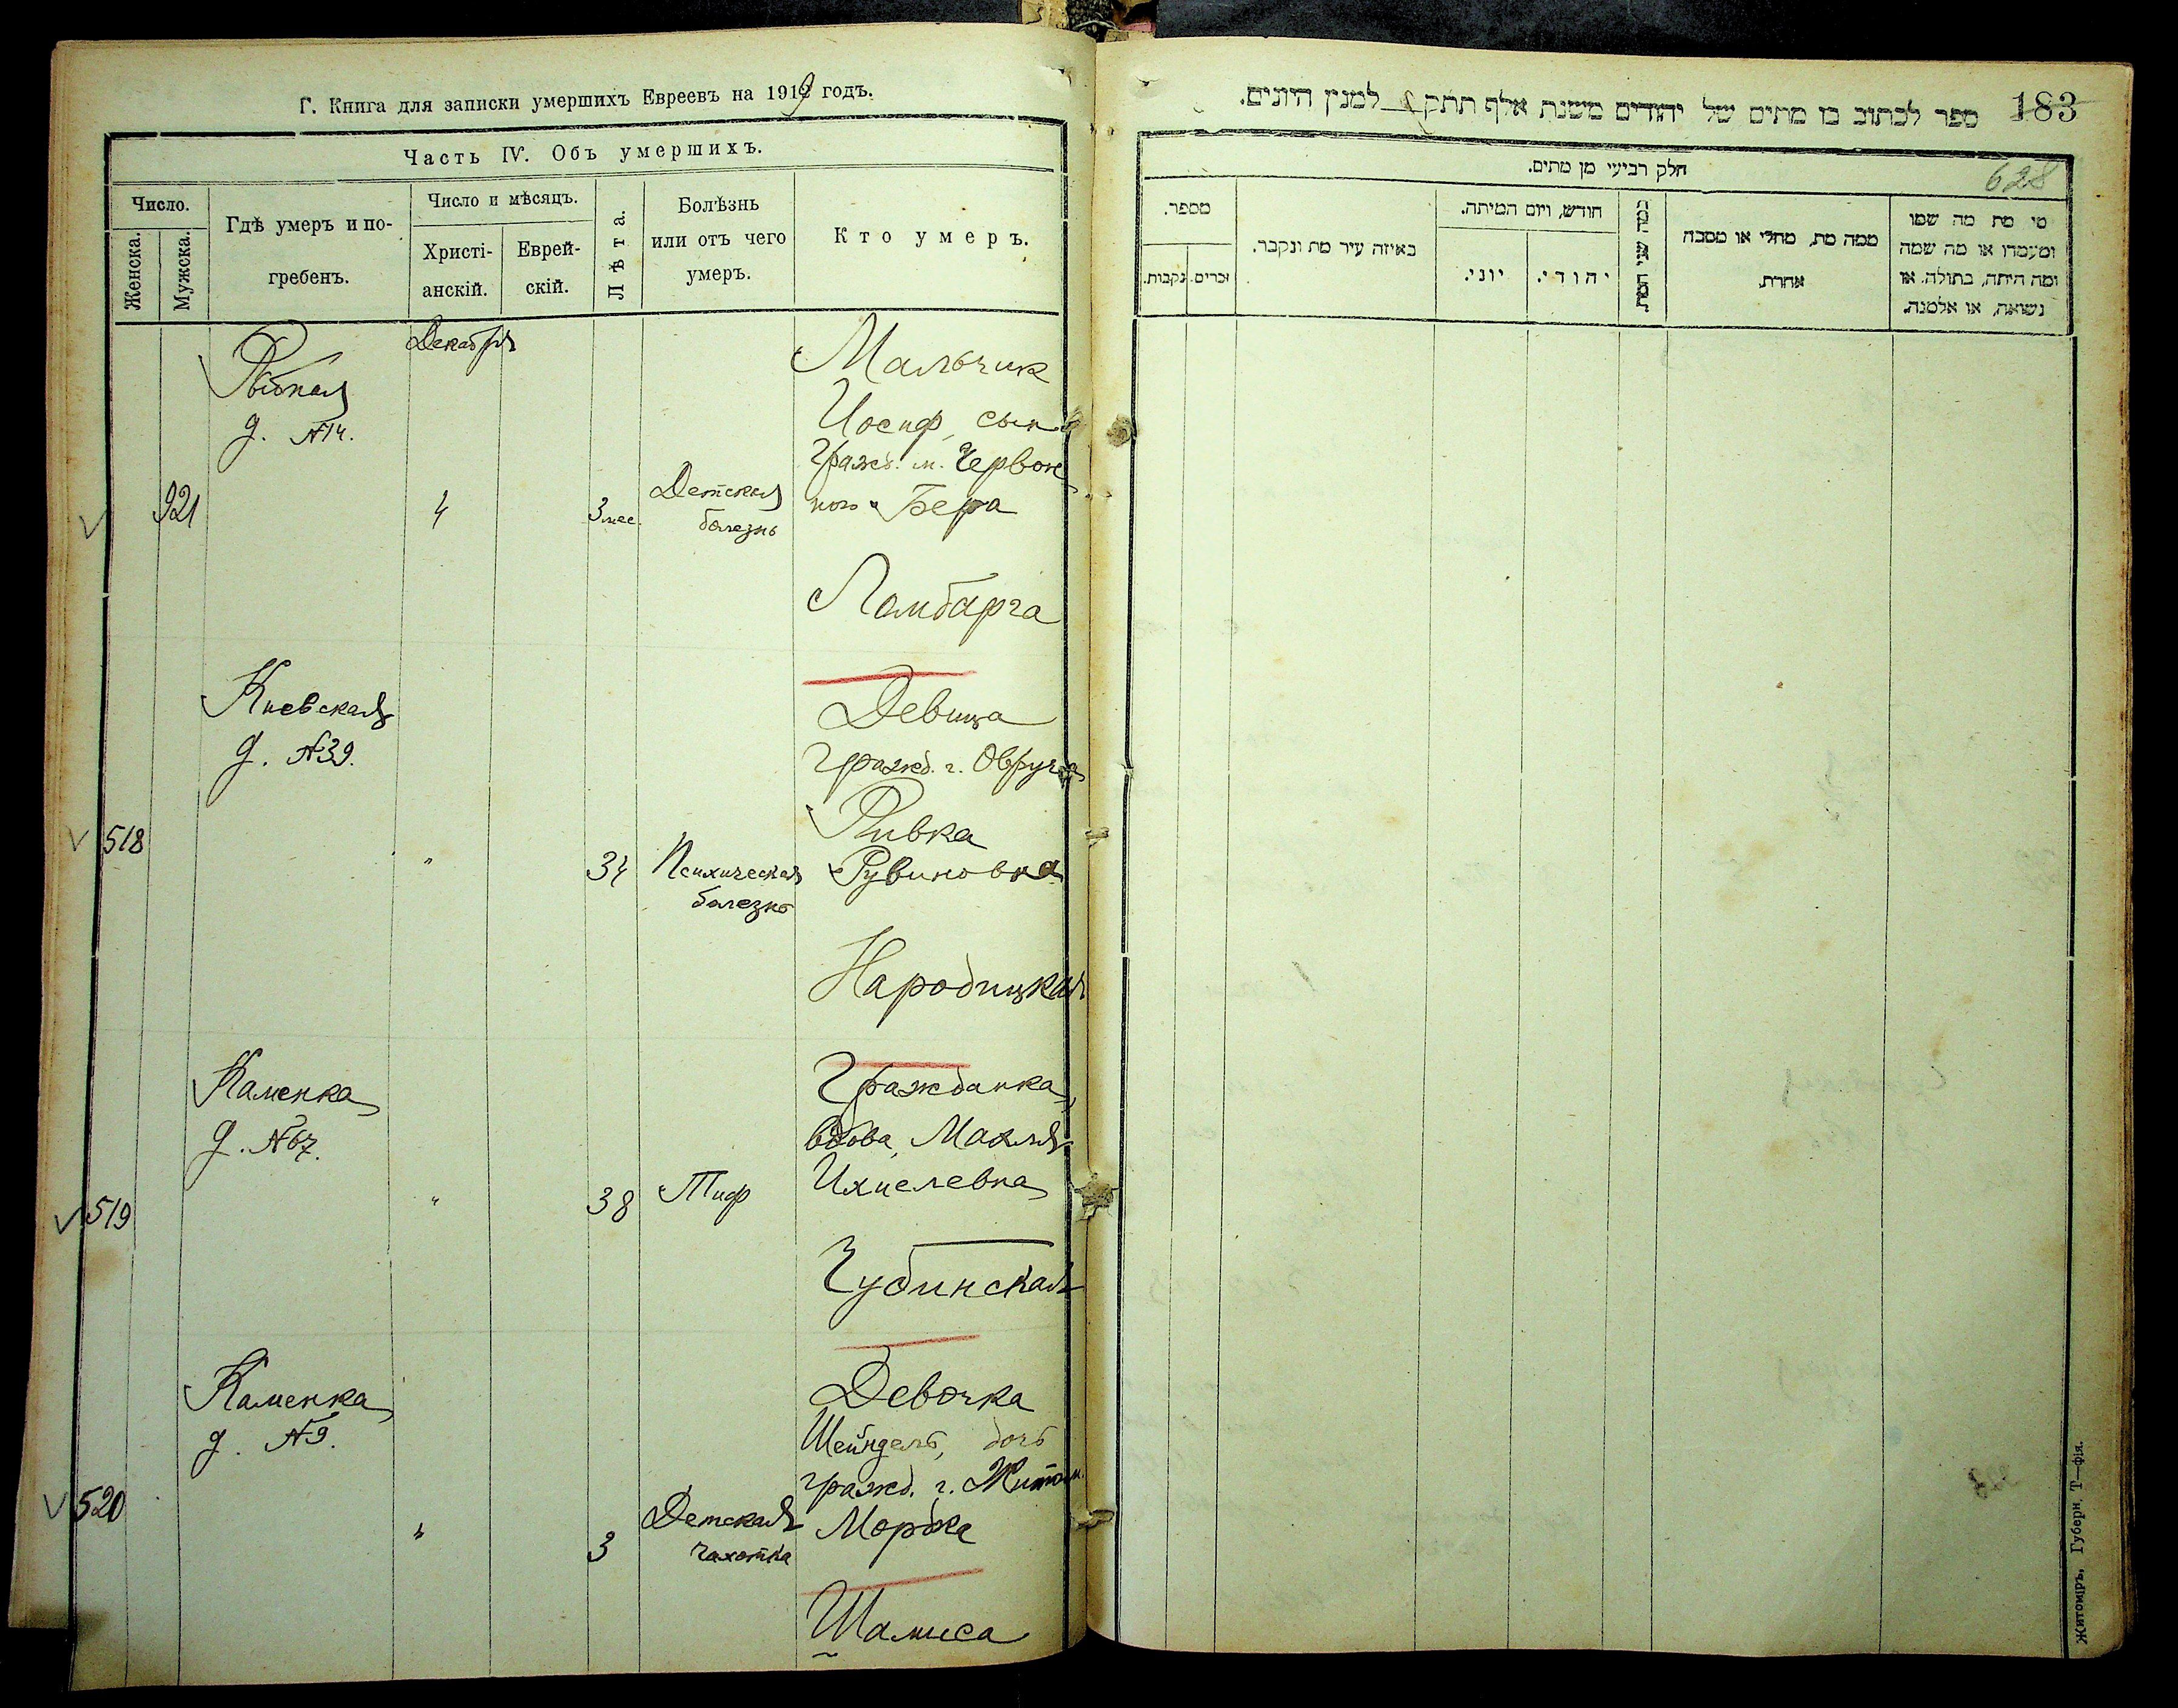 Г. Книга для записки умершихъ Евреевъ на 1919 годъ.
Часть IV. Объ умершихъ.
Число.
Женска.
Мужска.
Гдѣ умеръ и по-
гребенъ.
Число и мѣсяцъ.
Христі-
анскій.
Еврей-
скій.
Лѣта.
Болѣзнь
или отъ чего
умеръ.
Кто умеръ.
Декабря
Рыбная
д. №14.
921
4
3 мес.
Детская
болезнь
Мальчик
Иосиф, сын
Гражд. м. Червон
ного Бера
Ламбарга
Киевская
д. №39.
518
"
34
Психическая
болезнь
Девица
Гражд. г. Овруча
Ривка
Рувиновна
Народицкая
Каменка
д. №67.
519
"
38
Тиф
Гражданка,
вдова, Махля
Ихиелевна
Губинская
Каменка
д. №9.
520
"
3
Детская
чахотка
Девочка
Шейндель, дочь
гражд. г. Житом.
Мордка
Шамиса
183
ספר לכתוב בו מתים של יהודים משנת אלף תתק למנין היונים.
628
חלק רביעי מן מתים.
מי מת מה שמו
ומעמדו או מה שמה
ומה היתה, בתולה. או
נשואה, או אלמנה.
ממה מת, מחלי או מסבה
אחרת.
כמה שני המת
חודש, ויום המיתה.
יהודי.
יוני.
באיזה עיר מת ונקבר.
מספר.
זכרים.
נקבות.
Житоміръ, Губерн. Т—фія.